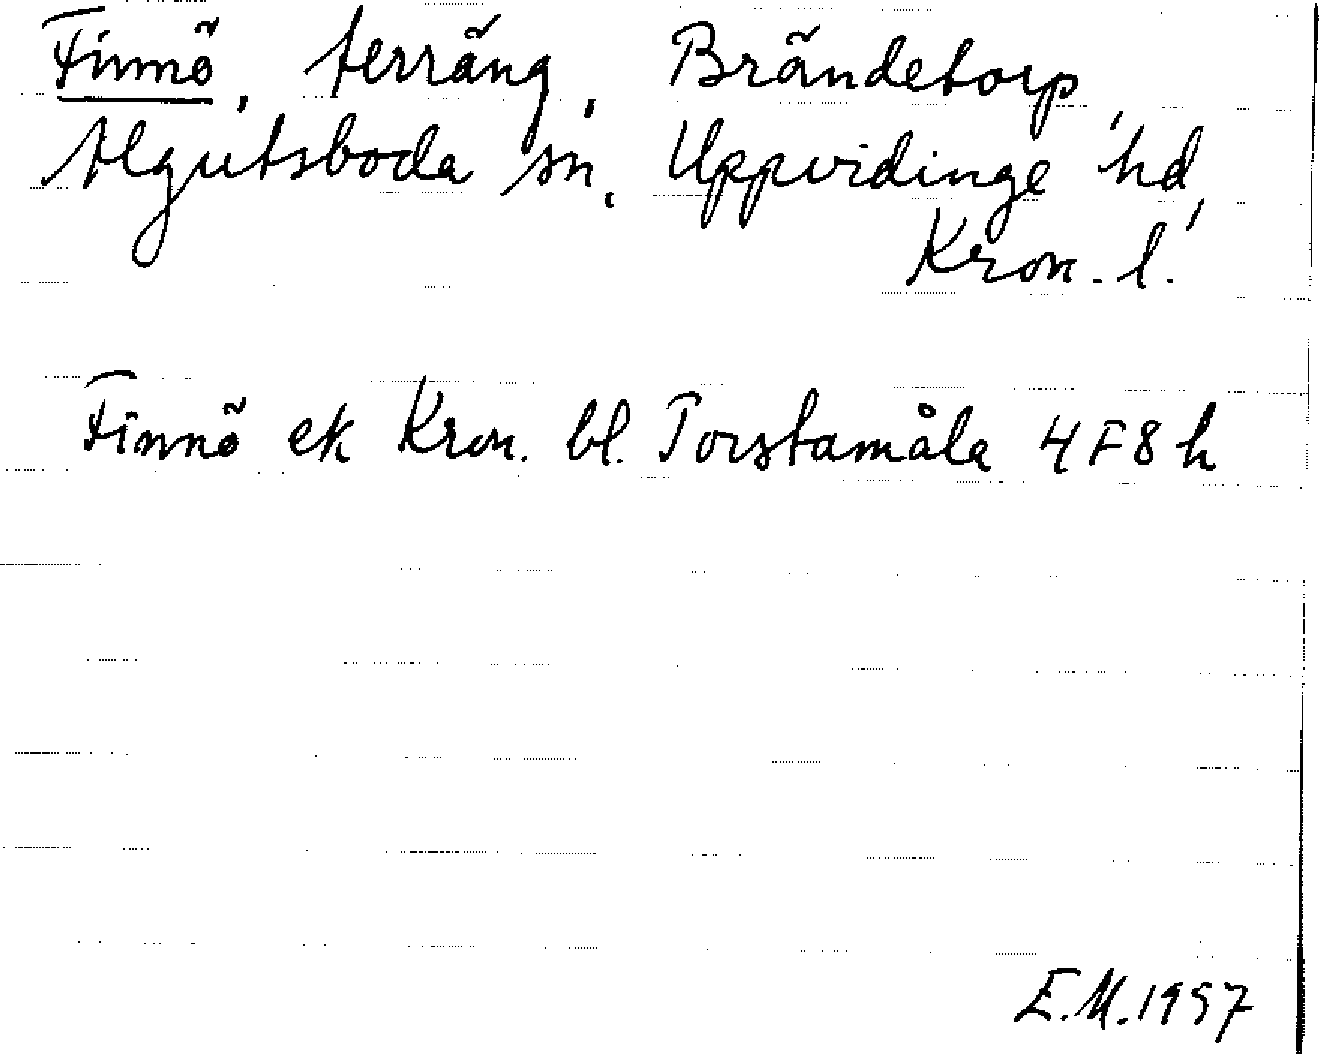 Finnö, terräng, Brändetorp,
Algutsboda sn, Uppvidinge hd,
Kron. l.
Finnö ek Kron. bl. Torstamåla 4F8h
E.M. 1957